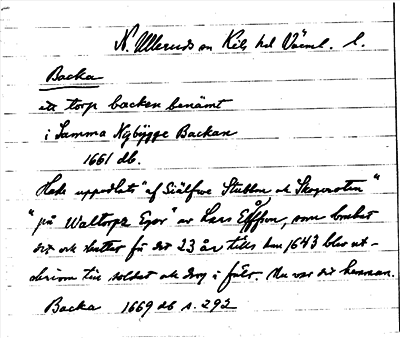 N. Ulleruds sn Kils hd Värml. l.
Backa
ett torp backen benämt
i Samma Nybygge Backan
1661 db.
Hade upparbets "af Siälfwe Stubben och Skogzroten"
"på Waltorps Egor" av Lars Elffson, som brukat
det och skatter för det 23 år tills han 1643 blev ut-
skriven till soldat och dog i fält. Nu var det hemman.
Backa 1669 db s. 292